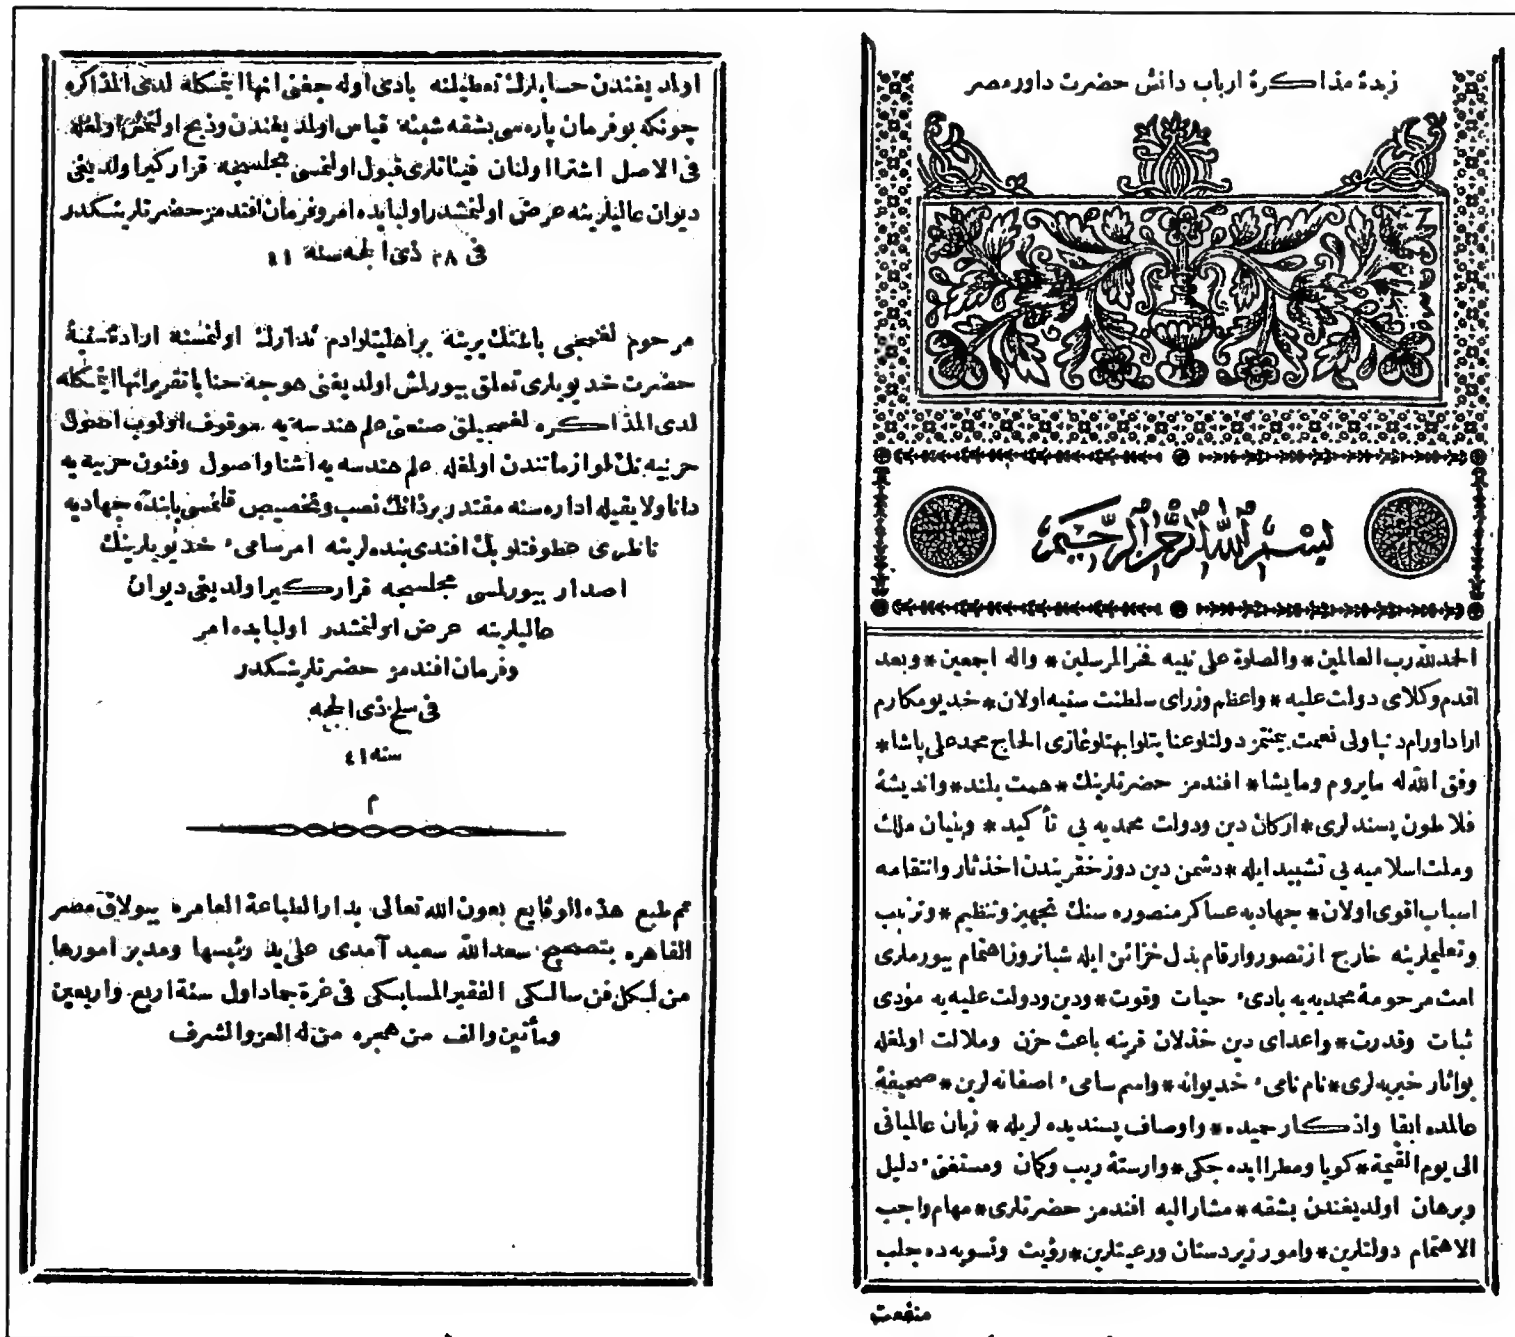 زبدۀ مذاكرۀ ارباب دانش حضرت داور مصر
بسم الله الرحمن الرحيم
الحمدلله رب العالمين * والصلوة على نبيه فخر المرسلين * واله اجمعين * وبعد
اقدم وكلاى دولت عليه * واعظم وزراى سلطنت سنيه اولان * خديو مكارم
ارا داورام دنيا ولى نعمت بيمنتمز دولتلو عنايتلو ابهتلو غازى الحاج محمد على پاشا *
وفق الله له مايروم ومايشا * افندمز حضرتلرينك * همت بلند * وانديشۀ
فلاطون پسندلرى * اركان دين ودولت محمديه يى تأكيد * وبنيان ملك
وملت اسلاميه يى تشييد ايله * دشمن دين دوزخ قريندن اخذ ثار وانتقامه
اسباب اقوى اولان * جهاديه عساكر منصوره سنك تجهيز وتنظيم * وترتيب
وتعليملرينه خارج از تصور وارقام بذل خزائن ايله شبانروز اهتمام بيورملرى
امت مرحومۀ محمديه يه بادىء حيات وقوت * ودين ودولت عليه يه مؤدى
ثبات وقدرت * واعداى دين خذلان قرينه باعث حزن وملالت اولمغله
بو اثار خيريه لرى * نام نامىء خديوانه * واسم سامىء اصفانه لرين * صحيفۀ
عالمده ابقا واذكار حميده * واوصاف پسنديده لريله * زبان عالميانى
الى يوم القيمة * كويا ومطرا ايده جكى * وارستۀ ريب وكمان ومستغنىء دليل
وبرهان اولديغندن بشقه * مشار اليه افندمز حضرتلرى * مهام واجب
الاهتمام دولتلرين * وامور زيردستان ورعيتلرين * رؤيت وتسويه ده جلب
منفعت
اولديغندن حسابلرك تعطيلنه بادى اوله جغنى انها ايتمكله لدى المذاكره
چونكه بو فرمان پاره سى بشقه شيئه قياس اولديغندن وذبح اولنمش اولمغله
فى الاصل اشترا اولنان فيئاتلرى قبول اولنمسى مجلسجه قراركير اولديغى
ديوان عاليلرينه عرض اولنمشدر اولبابده امر وفرمان افندمز حضرتلرينكدر
فى ٢٨ ذى الحجه سنة ٤١
مرحوم لغمجى باشنك يرينه بر اهليتلو ادم تدارك اولنمسنه ارادۀ سنيۀ
حضرت خديويلرى تعلق بيورلمش اولديغنى هوجه حنا با تقرير انها ايتمكله
لدى المذاكره لغمجيلق صنعتى علم هندسه يه موقوف اولوب اصول
حربيه نك لوازماتندن اولمغله علم هندسه يه اشنا واصول وفنون حربيه يه
دانا ولايقيله اداره سنه مقتدر بر ذاتك نصب وتخصيص قلنمسى بابنده جهاديه
ناظرى عطوفتلو بك افندى بنده لرينه امر سامىء خديويلرينك
اصدار بيورلمسى مجلسجه قراركير اولديغى ديوان
عاليلرينه عرض اولنمشدر اولبابده امر
وفرمان افندمز حضرتلرينكدر
فى سلخ ذى الحجه
سنه ٤١
م
تم طبع هذه الوقايع بعون الله تعالى بدار الطباعة العامره ببولاق مصر
القاهره بتصحيح سعدالله سعيد آمدى على يد رئيسها ومدبر امورها
من لكل فن سالك الفقير المسابكى فى غرة جماد اول سنة اربع واربعين
ومأتين والف من هجره من له العز والشرف